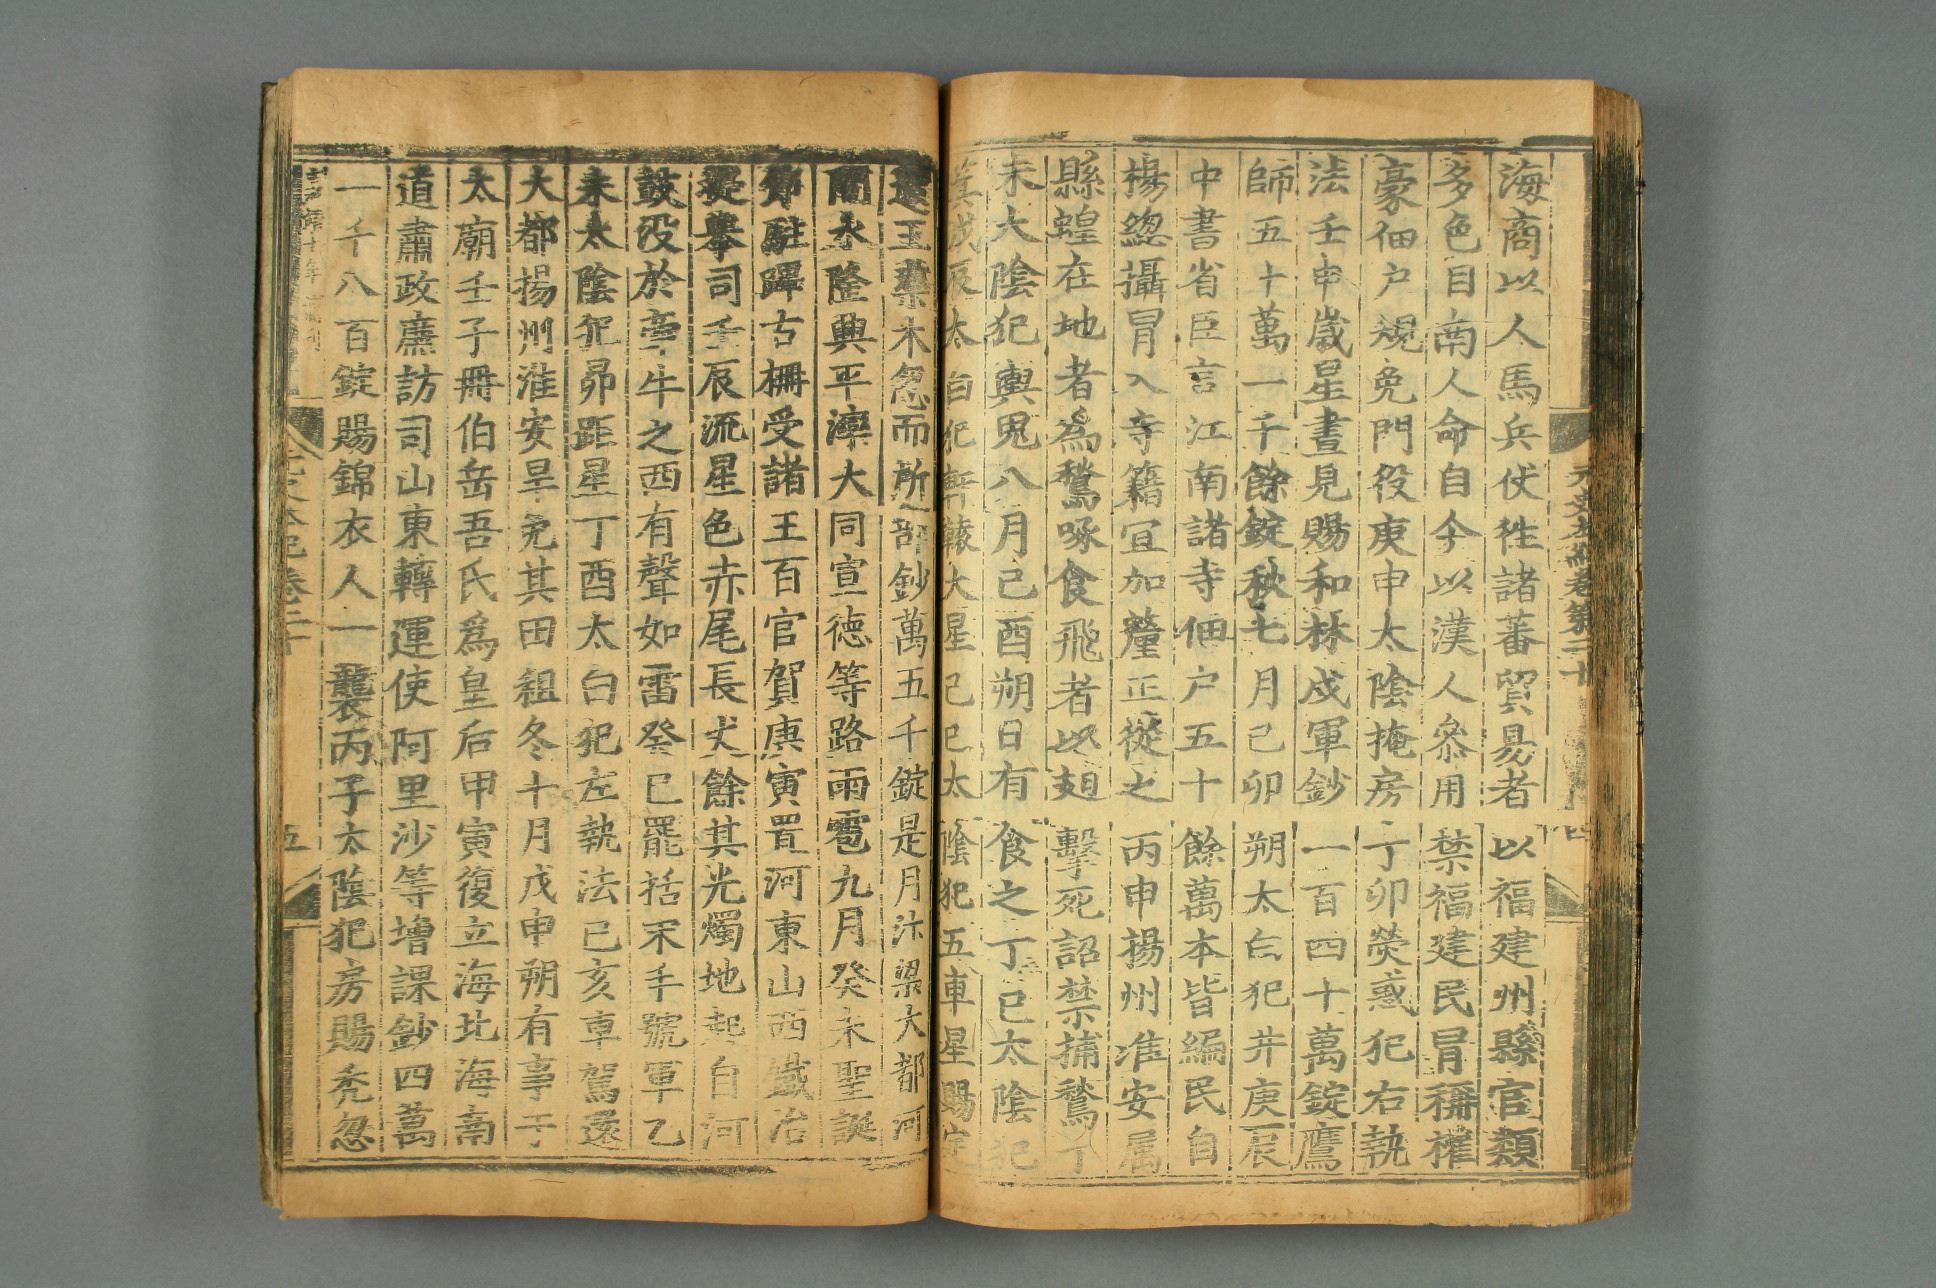 元史本紀卷第二十
四
海商以人馬兵仗徃諸蕃貿易者以福建州縣官類
多色目南人命自今以漢人參用禁福建民冒稱權
豪佃户規免門役庚申太陰掩房丁卯熒惑犯右執
法壬申歲星晝見賜和林戍軍鈔一百四十萬錠鷹
師五十萬一千餘錠秋七月己卯朔太白犯井庚辰
中書省臣言江南諸寺佃户五十餘萬本皆編民自
楊總攝冒入寺籍宜加釐正從之丙申揚州淮安属
縣蝗在地者爲鶖啄食飛者以翅擊死詔禁捕鶖丁
未太陰犯輿鬼八月己酉朔日有食之丁巳太陰犯
箕戊辰太白犯軒轅大星己巳太陰犯五車星賜定
遠王藥木忽而所部鈔萬五千錠是月汴梁大都河
間水隆興平灤大同宣德等路雨雹九月癸未聖誕
節駐蹕古柵受諸王百官賀庚寅置河東山西鐵冶
提舉司壬辰流星色赤尾長丈餘其光燭地起自河
鼓没於牽牛之西有聲如雷癸巳罷括宋手號軍乙
未太陰犯昴距星丁酉太白犯左執法己亥車駕還
大都揚州淮安旱免其田租冬十月戊申朔有事于
太廟壬子冊伯岳吾氏爲皇后甲寅復立海北海南
道肅政廉訪司山東轉運使阿里沙等增課鈔四萬
一千八百錠賜錦衣人一襲丙子太陰犯房賜秃忽
元史本紀卷二十
五